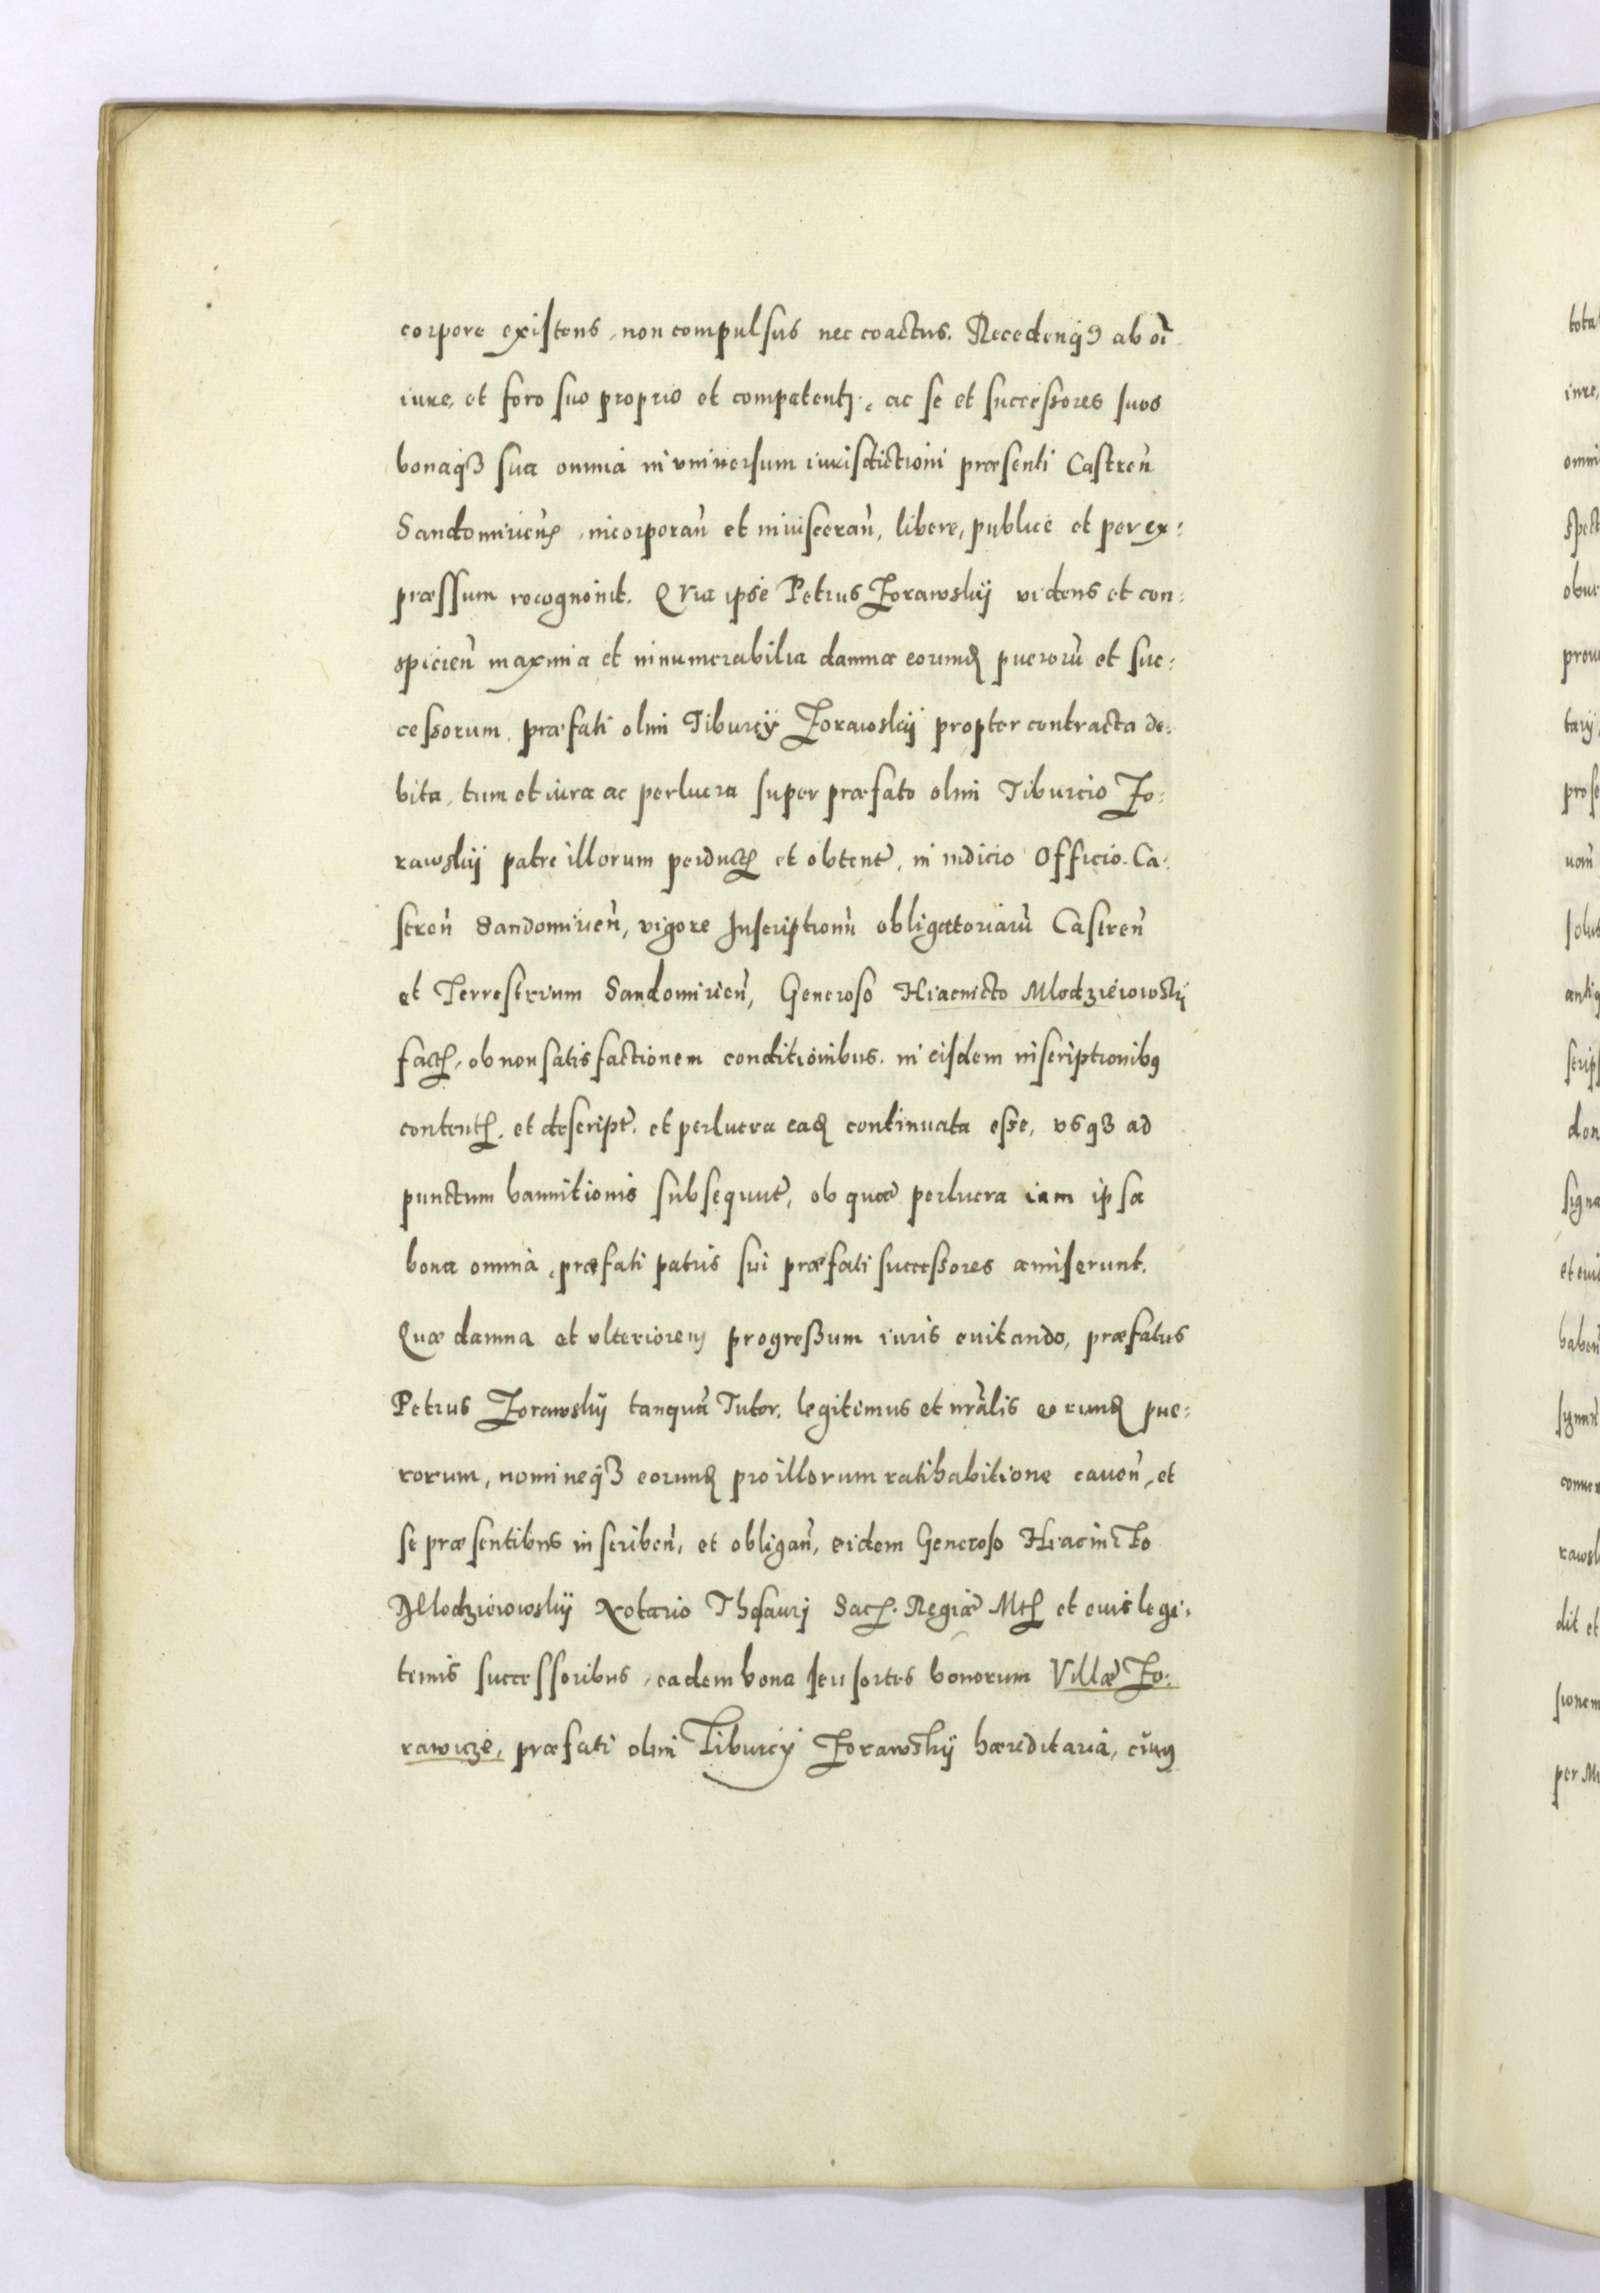 corpore existens, non compulsus nec coactus. Recedenqȝ ab oī
iure, et foro suo proprio et competentj, ac se et successores suos
bonaqȝ sua omnia in vniuersum iurisdictioni præsenti Castreñ
Sandomirieñ, incorporañ et inuisceran̄, libere, publice et per ex:
præssum recognouit. Qvia ipse Petrus Zorawskij videns et con:
spicieñ maxima et innumerabilia damna eorund puerorū et suc:
cessorum præfati olim Tiburcÿ Zorawskij propter contracta de:
bita, tum et iura ac perlucra super præfato olim Tiburcio Zo:
rawskij patre illorum perduct et obtent, in iudicio Officio Ca:
streñ Sandomirieñ, vigore Inscriptionū obligatoriarū Castreñ
et Terrestrium Sandomirieñ, Generoso Hiacincto Mlodzieiowskÿ
fact, ob non satisfactionem conditionibus in eisdem inscriptionibꝰ
content, et descript, et perlucra ead continuata esse, vsqȝ ad
punctum bannitionis subsequut, ob quæ perlucra iam ipsa
bona omnia præfati patris sui præfati successores amiserunt.
Quæ damna et vlteriorem progressum iuris euitando, præfatus
Petrus Zorawskÿ tanquā Tutor, legitimus et nr̄alis eorund pue:
rorum, nomineqȝ eorund pro illorum ratihabitione caueñ, et
se præsentibus inscribeñ, et obligañ, eidem Generoso Hiacincto
Mlodzieiowskÿ Notario Thesaurj Sac. Regiæ Mt et eius legi:
temis successoribus, eadem bona seu sortes bonorum Villæ Zo:
rawicze, præfati olim Tiburcÿ Zorawskÿ hæreditaria, cuiꝰ
tota
iure,
omni
spect
prou
tarÿ
prose
solut
antiq
scrips
don
signa
et eui
conuer
rawsk
dit et
sionem
per M